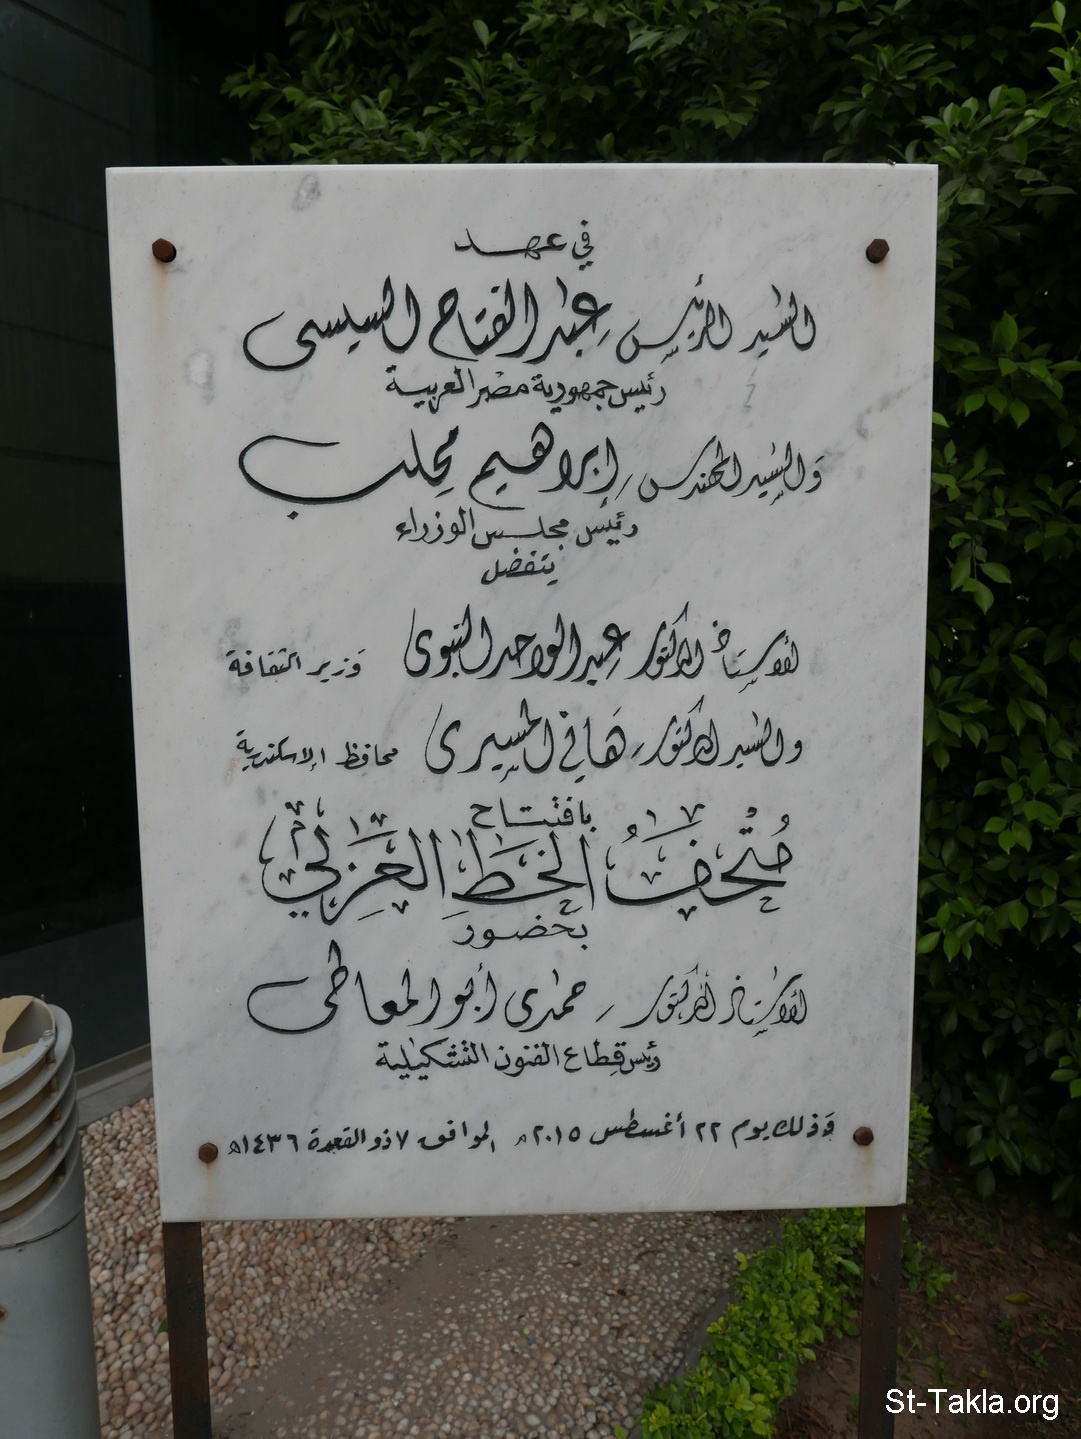 في عهد
السيد الرئيس عبد الفتاح السيسى
رئيس جمهورية مصر العربية
والسيد المهندس / إبراهيم محلب
رئيس مجلس الوزراء
يتفضل
الأستاذ الدكتور عبد الواحد النبوى وزير الثقافة
والسيد الدكتور / هاني المسيرى محافظ الإسكندرية
بافتتاح
متحف الخط العربي
بحضور
الأستاذ الدكتور / حمدى أبو المعاطى
رئيس قطاع الفنون التشكيلية
وذلك يوم ٢٢ أغسطس ٢٠١٥م الموافق ٧ ذو القعدة ١٤٣٦هـ
St-Takla.org